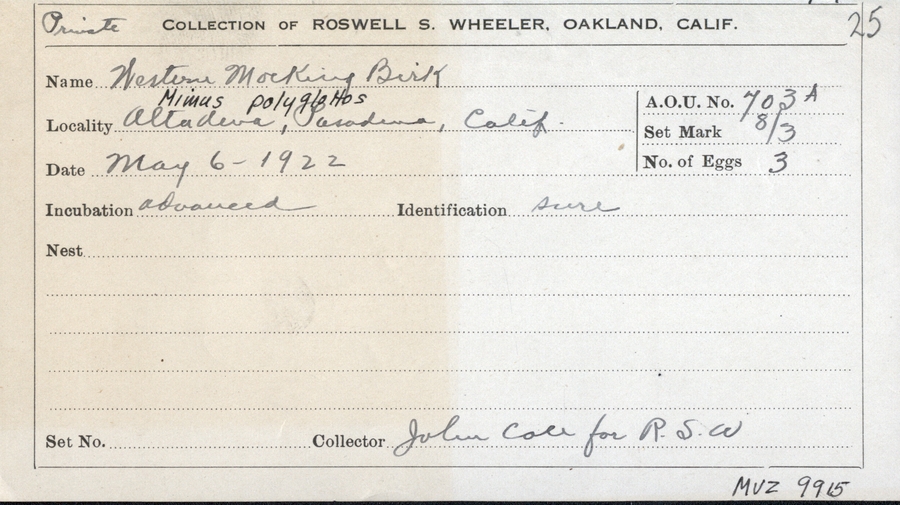 Private COLLECTION OF ROSWELL S. WHEELER, OAKLAND, CALIF. 25
Name Western Mocking Bird
Mimus polyglottos
Locality Altadena, Pasadena, Calif.
A.O.U. No. 703A
Set Mark 8/3
Date May 6 - 1922
No. of Eggs 3
Incubation advanced Identification sure
Nest
Set No. Collector John Cole for R.S.W
MVZ 9915